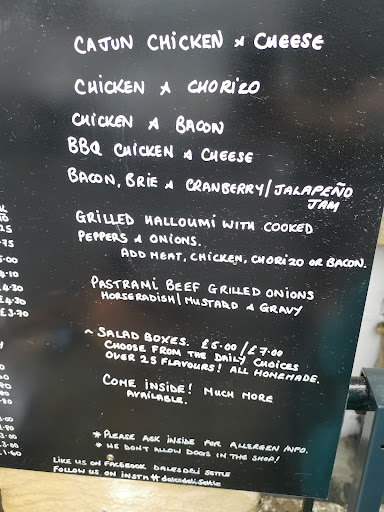 CAJUN CHICKEN & CHEESE
CHICKEN & CHORIZO
CHICKEN & BACON
BBQ CHICKEN & CHEESE
BACON, BRIE & CRANBERRY/JALAPEÑO
JAM
GRILLED HALLOUMI WITH COOKED
PEPPERS & ONIONS.
ADD MEAT, CHICKEN, CHORIZO OR BACON.
PASTRAMI BEEF GRILLED ONIONS
HORSERADISH/MUSTARD & GRAVY
~ SALAD BOXES. £5.00/£7.00
CHOOSE FROM THE DAILY CHOICES
OVER 25 FLAVOURS! ALL HOMEMADE.
COME INSIDE! MUCH MORE
AVAILABLE.
* PLEASE ASK INSIDE FOR ALLERGEN INFO.
* WE DON'T ALLOW DOGS IN THE SHOP!
LIKE US ON FACEBOOK DALESDELI SETTLE
FOLLOW US ON INSTA # dalesdeli.settle